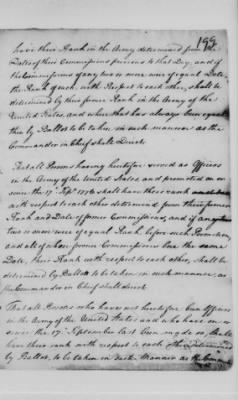 199
have their Rank in the Army determined from the
Dates of their Commissions previous to that Day, and if
the Commissions of any two or more were of equal Date
the Rank of such, with Respect to each other, shall be
determined by their former Rank in the Army of the
United States, and where that has always been equal
then by Ballot to be taken in such manner as the
Commander in Chief shall direct
That all Persons having heretofore served as Officers
in the Army of the United States and promoted on or
since the 17th Septr 1776 shall have their rank
with respect to each other determined from their former
Rank and Date of former Commissions, and if any
two or more were of equal Rank before such Promotion,
and all whose former Commissions bear the same
Date, their Rank with respect to each other, shall be
determined by Ballot to be taken in such manner, as
the Commander in Chief shall direct
That all Persons who have not heretofore been Officers
in the Army of the United States and who have on or
since the 17th September last been made so, shall
have their rank with respect to each other determined
by Ballot, to be taken in such Manner as the